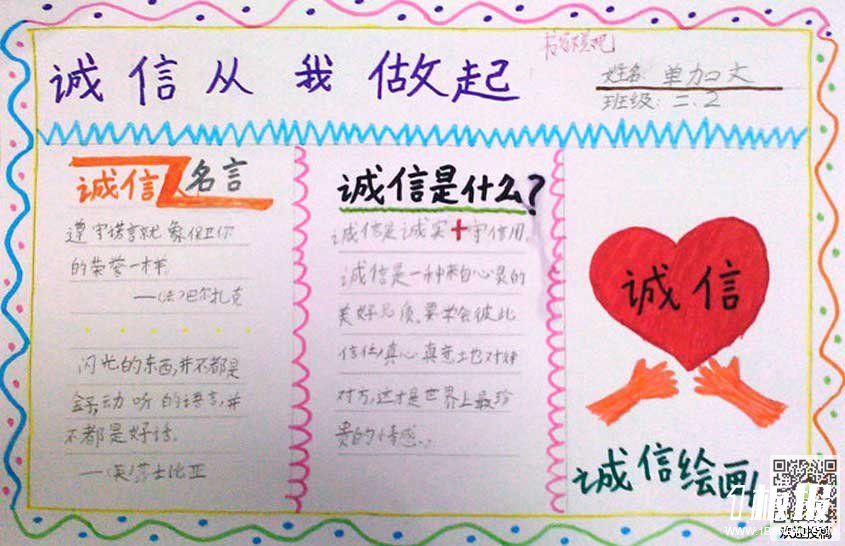 诚信从我做起
姓名：单加文
班级：二、2
诚信名言
遵守诺言就象保卫你
的荣誉一样。
——（法）巴尔扎克
闪光的东西，并不都是
金子，动听的语言，并
不都是好话。
——（英）莎士比亚
诚信是什么？
诚信是诚实+守信用。
诚信是一种来自心灵的
美好品质。要学会彼此
信任，真心真意土也对待
对方，这才是世界上最珍
贵的情感。
诚信
诚信绘画！
个板报
欢迎投稿